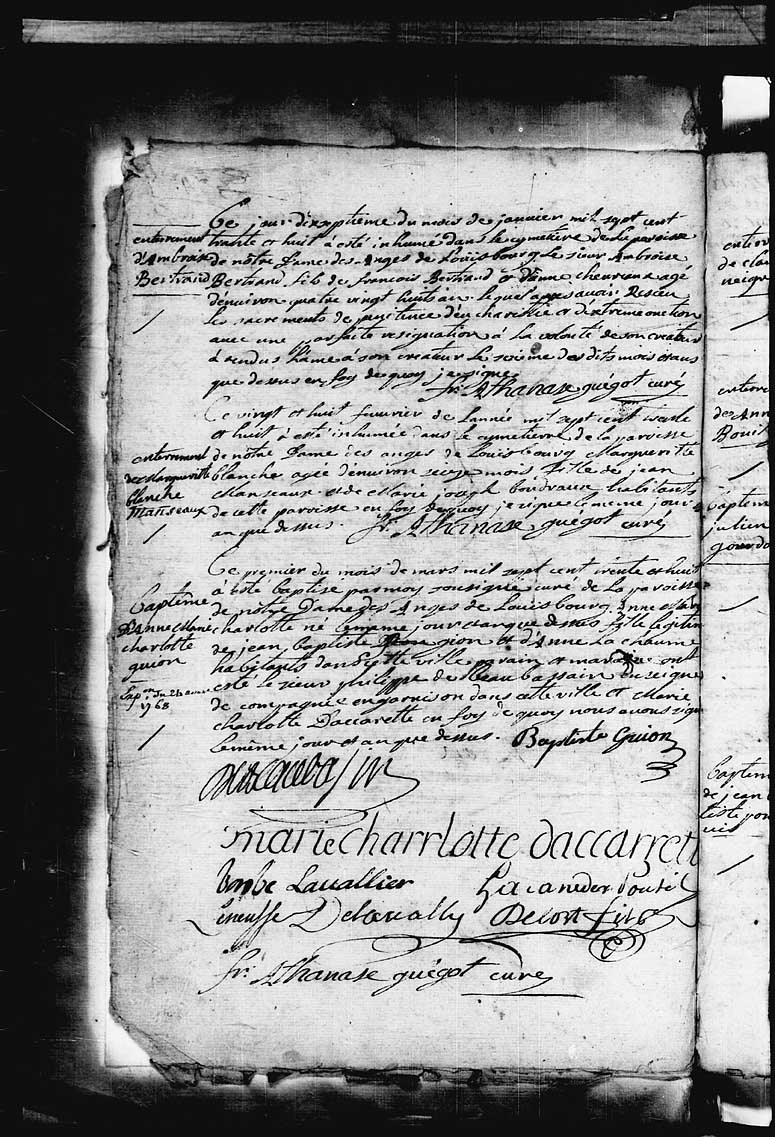 Ce jour dixseptieme du mois de janvier mil sept cent
enterrement
d'Ambroise
Bertrand
trante et huit à esté inhumé dans le cymetiere de la paroisse
de notre Dame des Anges de Louisbourg Le sieur Ambroise
Bertrand fils de francois Bertrand et d'anne agé
denviron quatre vingt huit an lequel apres avoir Reseu
Les sacrements de penitence d'eucharistie et d'extreme onction
avec une parfaite resignation à la volonté de son createur
à rendus L'ame à son createur Le des dits mois et ans
que dessus en foy de quoy je signe
fr. Athanase guégot curé
Ce vingt et huit fevvrier de Lannée mil sept cent trente
et huit à esté inhumée dans le cymetierre de la paroisse
enterrement
de Margueritte
blanche
Manseaux
de notre Dame des anges de Louisbourg Margueritte
blanche agée denviron seize mois fille de jean
Manseaux et de Marie joseph boudraux habitants
de cette paroisse en foy de quoy je signe le meme jour
an que dessus. fr. Athanase guégot curé
Ce premier du mois de mars mil sept cent trente et huit
à esté baptisé par moy sousigné curé de La paroisse
Baptême
D'Anne Marie
charlotte
guion
de notre Dame des Anges de Louisbourg Anne Marie
charlotte né le meme jour et an que dessus fille legitime
de jean baptiste gion et d'Anne La chaume
habitants dans cette ville parain et maraine ont
Exp. on du 26
1768
esté Le sieur philippe de Beaubassain enseigne
de compagnie en garnison dans cette ville et Marie
charlotte Daccarette en foy de quoy nous avons signé
le meme jour et an que dessus. Baptiste Guion
marie charrlotte daccarrett
Barbe Lavallier
Delort fils
fr. Athanase guégot curé
enterre
de
Baptem
julien
gourdo
Baptem
de jean
tiste